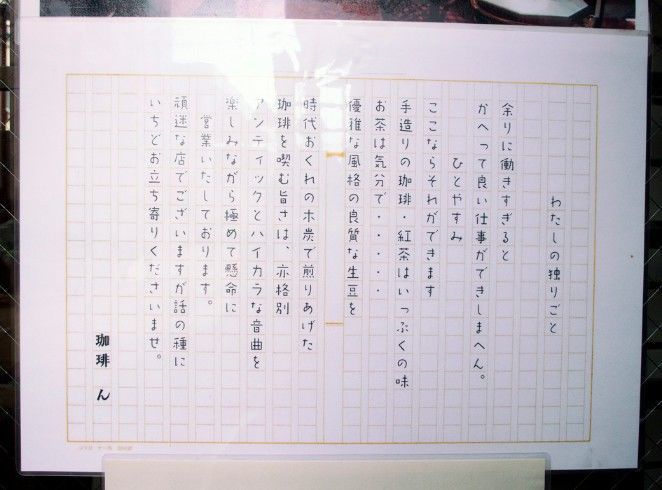 わたしの独りごと
余りに働きすぎると
かへって良い仕事ができしまへん。
ひとやすみ
ここならそれができます
手造りの珈琲・紅茶はいっぷくの味
お茶は気分で・・・・・
優雅な風格の良質な生豆を
時代おくれの木炭で煎りあげた
珈琲を喫む旨さは、亦格別
アンティックとハイカラな音曲を
楽しみながら極めて懸命に
営業いたしております。
頑迷な店でございますが話の種に
いちどお立ち寄りくださいませ。
珈琲 ん